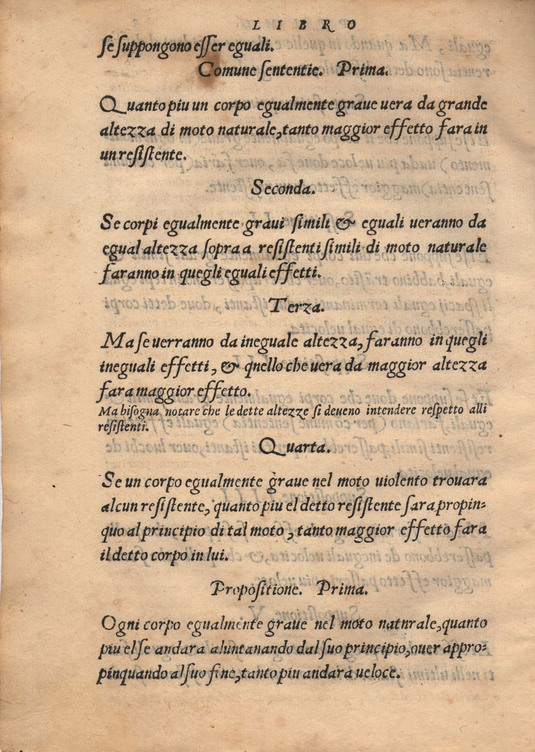 LIBRO
se suppongono esser eguali.
Comune sententie. Prima.
Quanto piu un corpo egualmente graue uera da grande
altezza di moto naturale, tanto maggior effetto fara in
un resistente.
Seconda.
Se corpi egualmente graui simili & eguali ueranno da
egual altezza sopra a resistenti simili di moto naturale
faranno in quegli eguali effetti.
Terza.
Ma se uerranno da ineguale altezza, faranno in quegli
ineguali effetti, & quello che uera da maggior altezza
fara maggior effetto.
Ma bisogna notare che le dette altezze si deueno intendere respetto alli
resistenti.
Quarta.
Se un corpo egualmente graue nel moto uiolento trouara
alcun resistente, quanto piu el detto resistente sara propin-
quo al principio di tal moto, tanto maggior effetto fara
il detto corpo in lui.
Propositione. Prima.
Ogni corpo egualmente graue nel moto natnrale, quanto
piu el se andara aluntanando dal suo principio, ouer appro-
pinquando al suo fine, tanto piu andara ueloce.